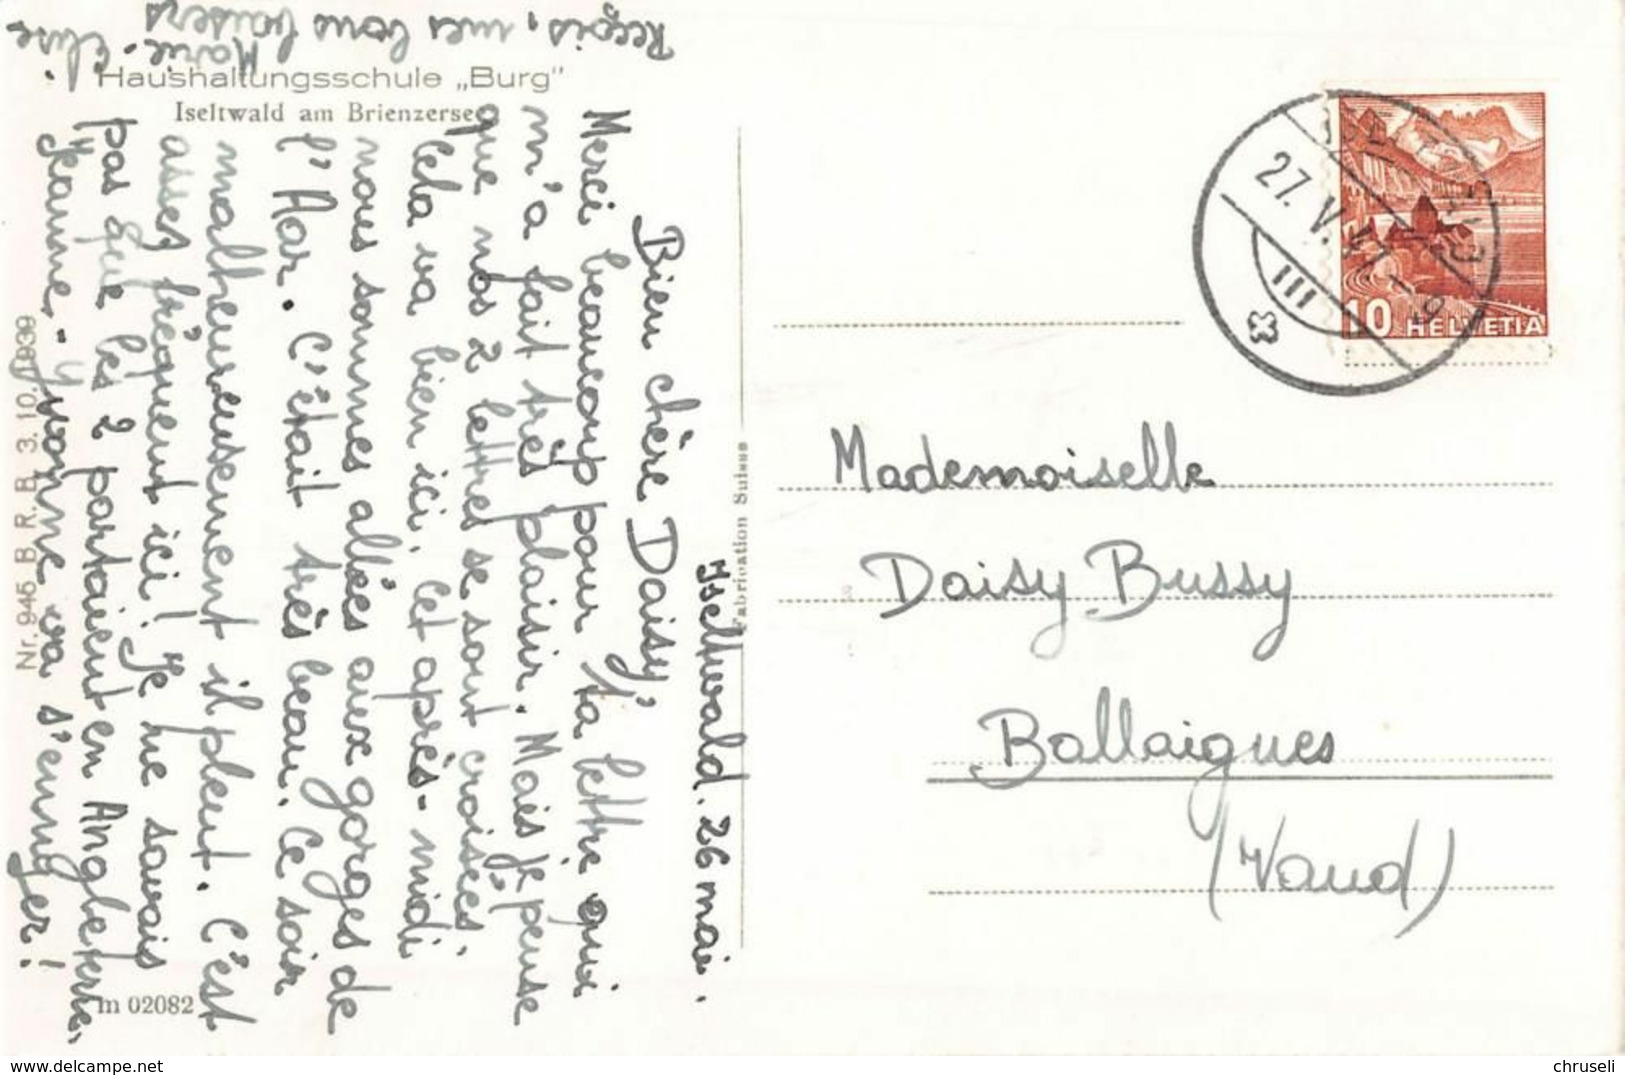 Haushaltungsschule „Burg"
Iseltwald am Brienzersee
Iseltwald. 26 mai.
Bien chère Daisy,
Merci beaucoup pour ta lettre qui
m'a fait très plaisir. Mais je pense
que nos 2 lettres se sont croisées.
Cela va bien ici. Cet après-midi
nous sommes allées aux gorges de
l'Aar. C'était très beau. Ce soir
malheureusement il pleut. C'est
asses fréquent ici! Je ne savais
pas que les 2 partaient en Angleterre,
Jeanne-Yvonne va s'ennuyer!
Reçois, mes bons baisers
Marie-Elise.
Nr. 945 B. R. B. 3. 10. 1939
m 02082
Fabrication Suisse
27. V. 47.-9
III
10 HELVETIA
Mademoiselle
Daisy Bussy
Ballaigues
(Vaud)
www.delcampe.net
chruseli